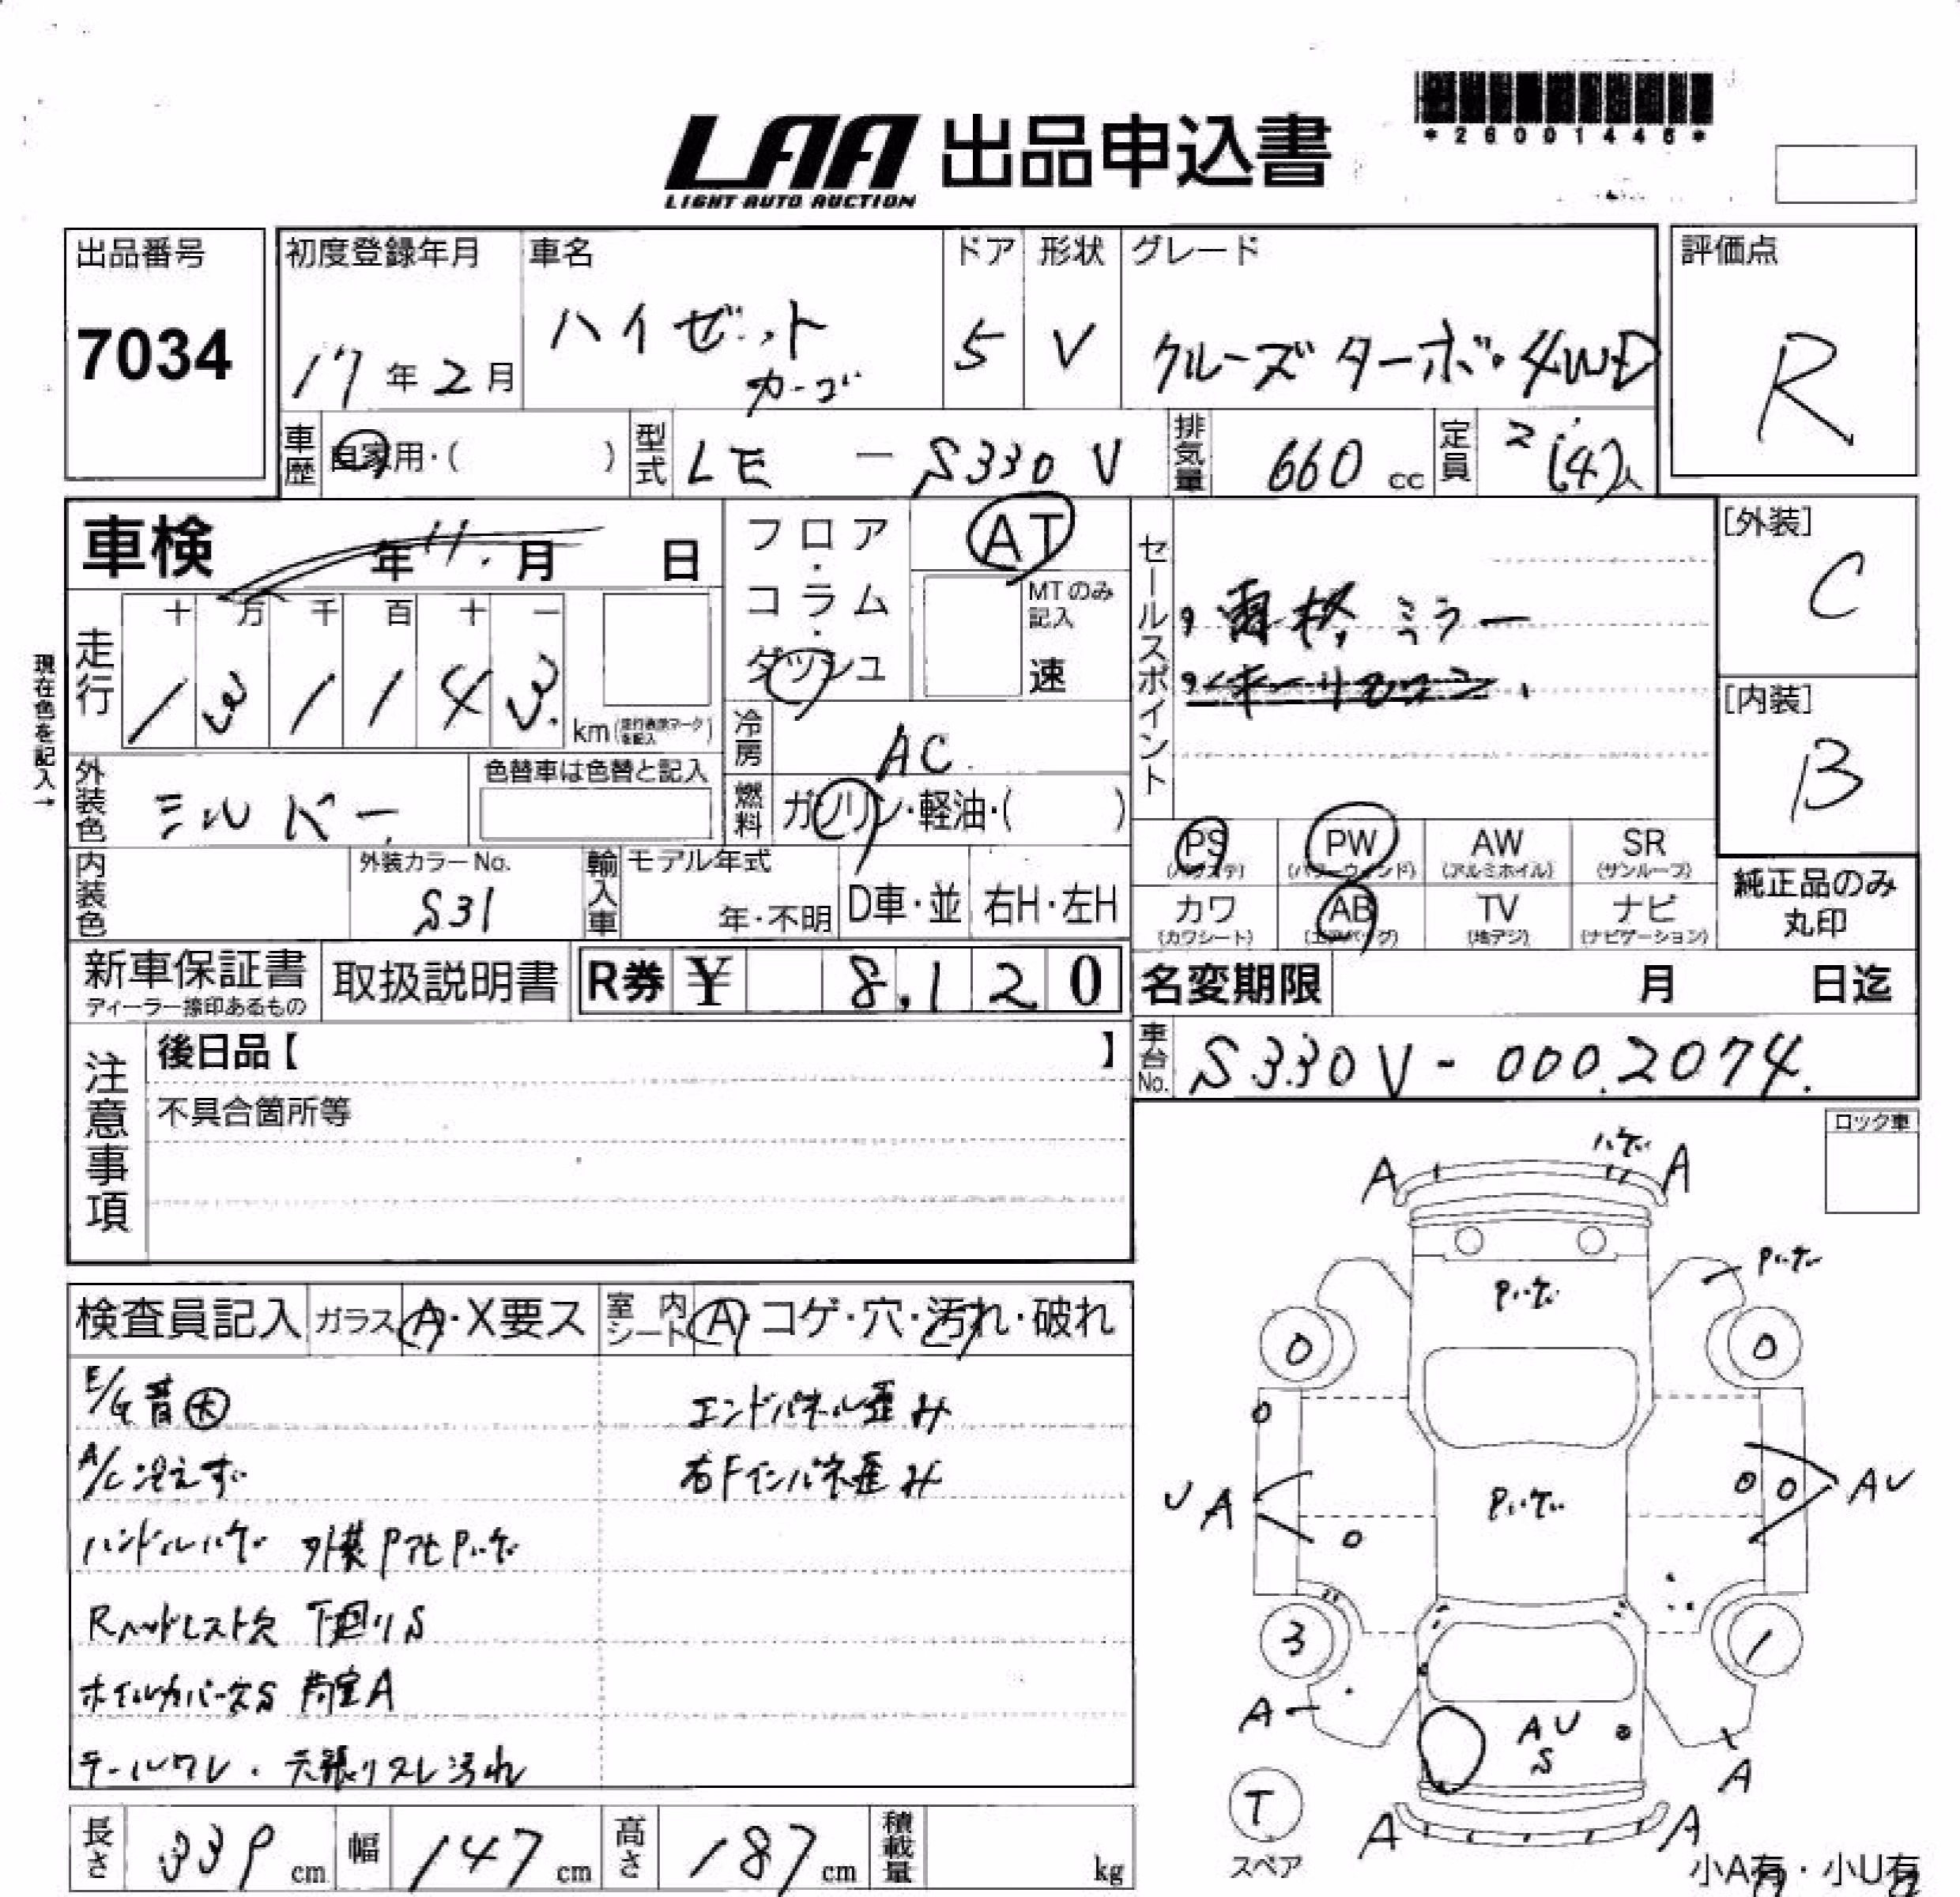 *26001446*
LAA 出品申込書
LIGHT AUTO AUCTION
出品番号
7034
初度登録年月
17年2月
車名
ハイゼット
カーゴ
ドア
5
形状
V
グレード
クルーズターボ・4WD
評価点
R
車歴
自家用・( )
型式
LE-S330V
排気量
660cc
定員
2(4)人
車検 年11.月 日
フロア・コラム・ダッシュ
AT
MTのみ
記入
速
セールスポイント
電格ミラー
キーレス
[外装]
C
[内装]
B
現在色を記入→
走行
十万千百十一
131143
km(走行表示マークを記入)
冷房
AC
外装色
シルバー
色替車は色替と記入
燃料
ガソリン・軽油・( )
PS
(パワステ)
PW
(パワーウィンド)
AW
(アルミホイル)
SR
(サンルーフ)
カワ
(カワシート)
AB
(エアバッグ)
TV
(地デジ)
ナビ
(ナビゲーション)
純正品のみ
丸印
内装色
外装カラーNo.
S31
輸入車
モデル年式
年・不明
D車・並
右H・左H
新車保証書
ディーラー捺印あるもの
取扱説明書
R券 ¥ 8,120
名変期限 月 日迄
車台No.
S330V-0002074
注意事項
後日品【 】
不具合箇所等
ロック車
検査員記入
ガラス A・X要ス
室内シート A・コゲ・穴・汚れ・破れ
E/G音大
エンドパネル歪み
A/C冷えず
右Fインパネ歪み
ハンドルハゲ 外装PアセPボケ
Rヘッドレスト欠 下廻りS
ホイルカバー欠S 荷室A
テールワレ・天張りスレ汚れ
A ハゲ A
Pボケ
Pボケ
0 0
0
Pボケ
UA
0 0 AU
0
3 1
A
AU
S
A
T
スペア
A A
小A有・小U有
長さ 339cm
幅 147cm
高さ 187cm
積載量 kg